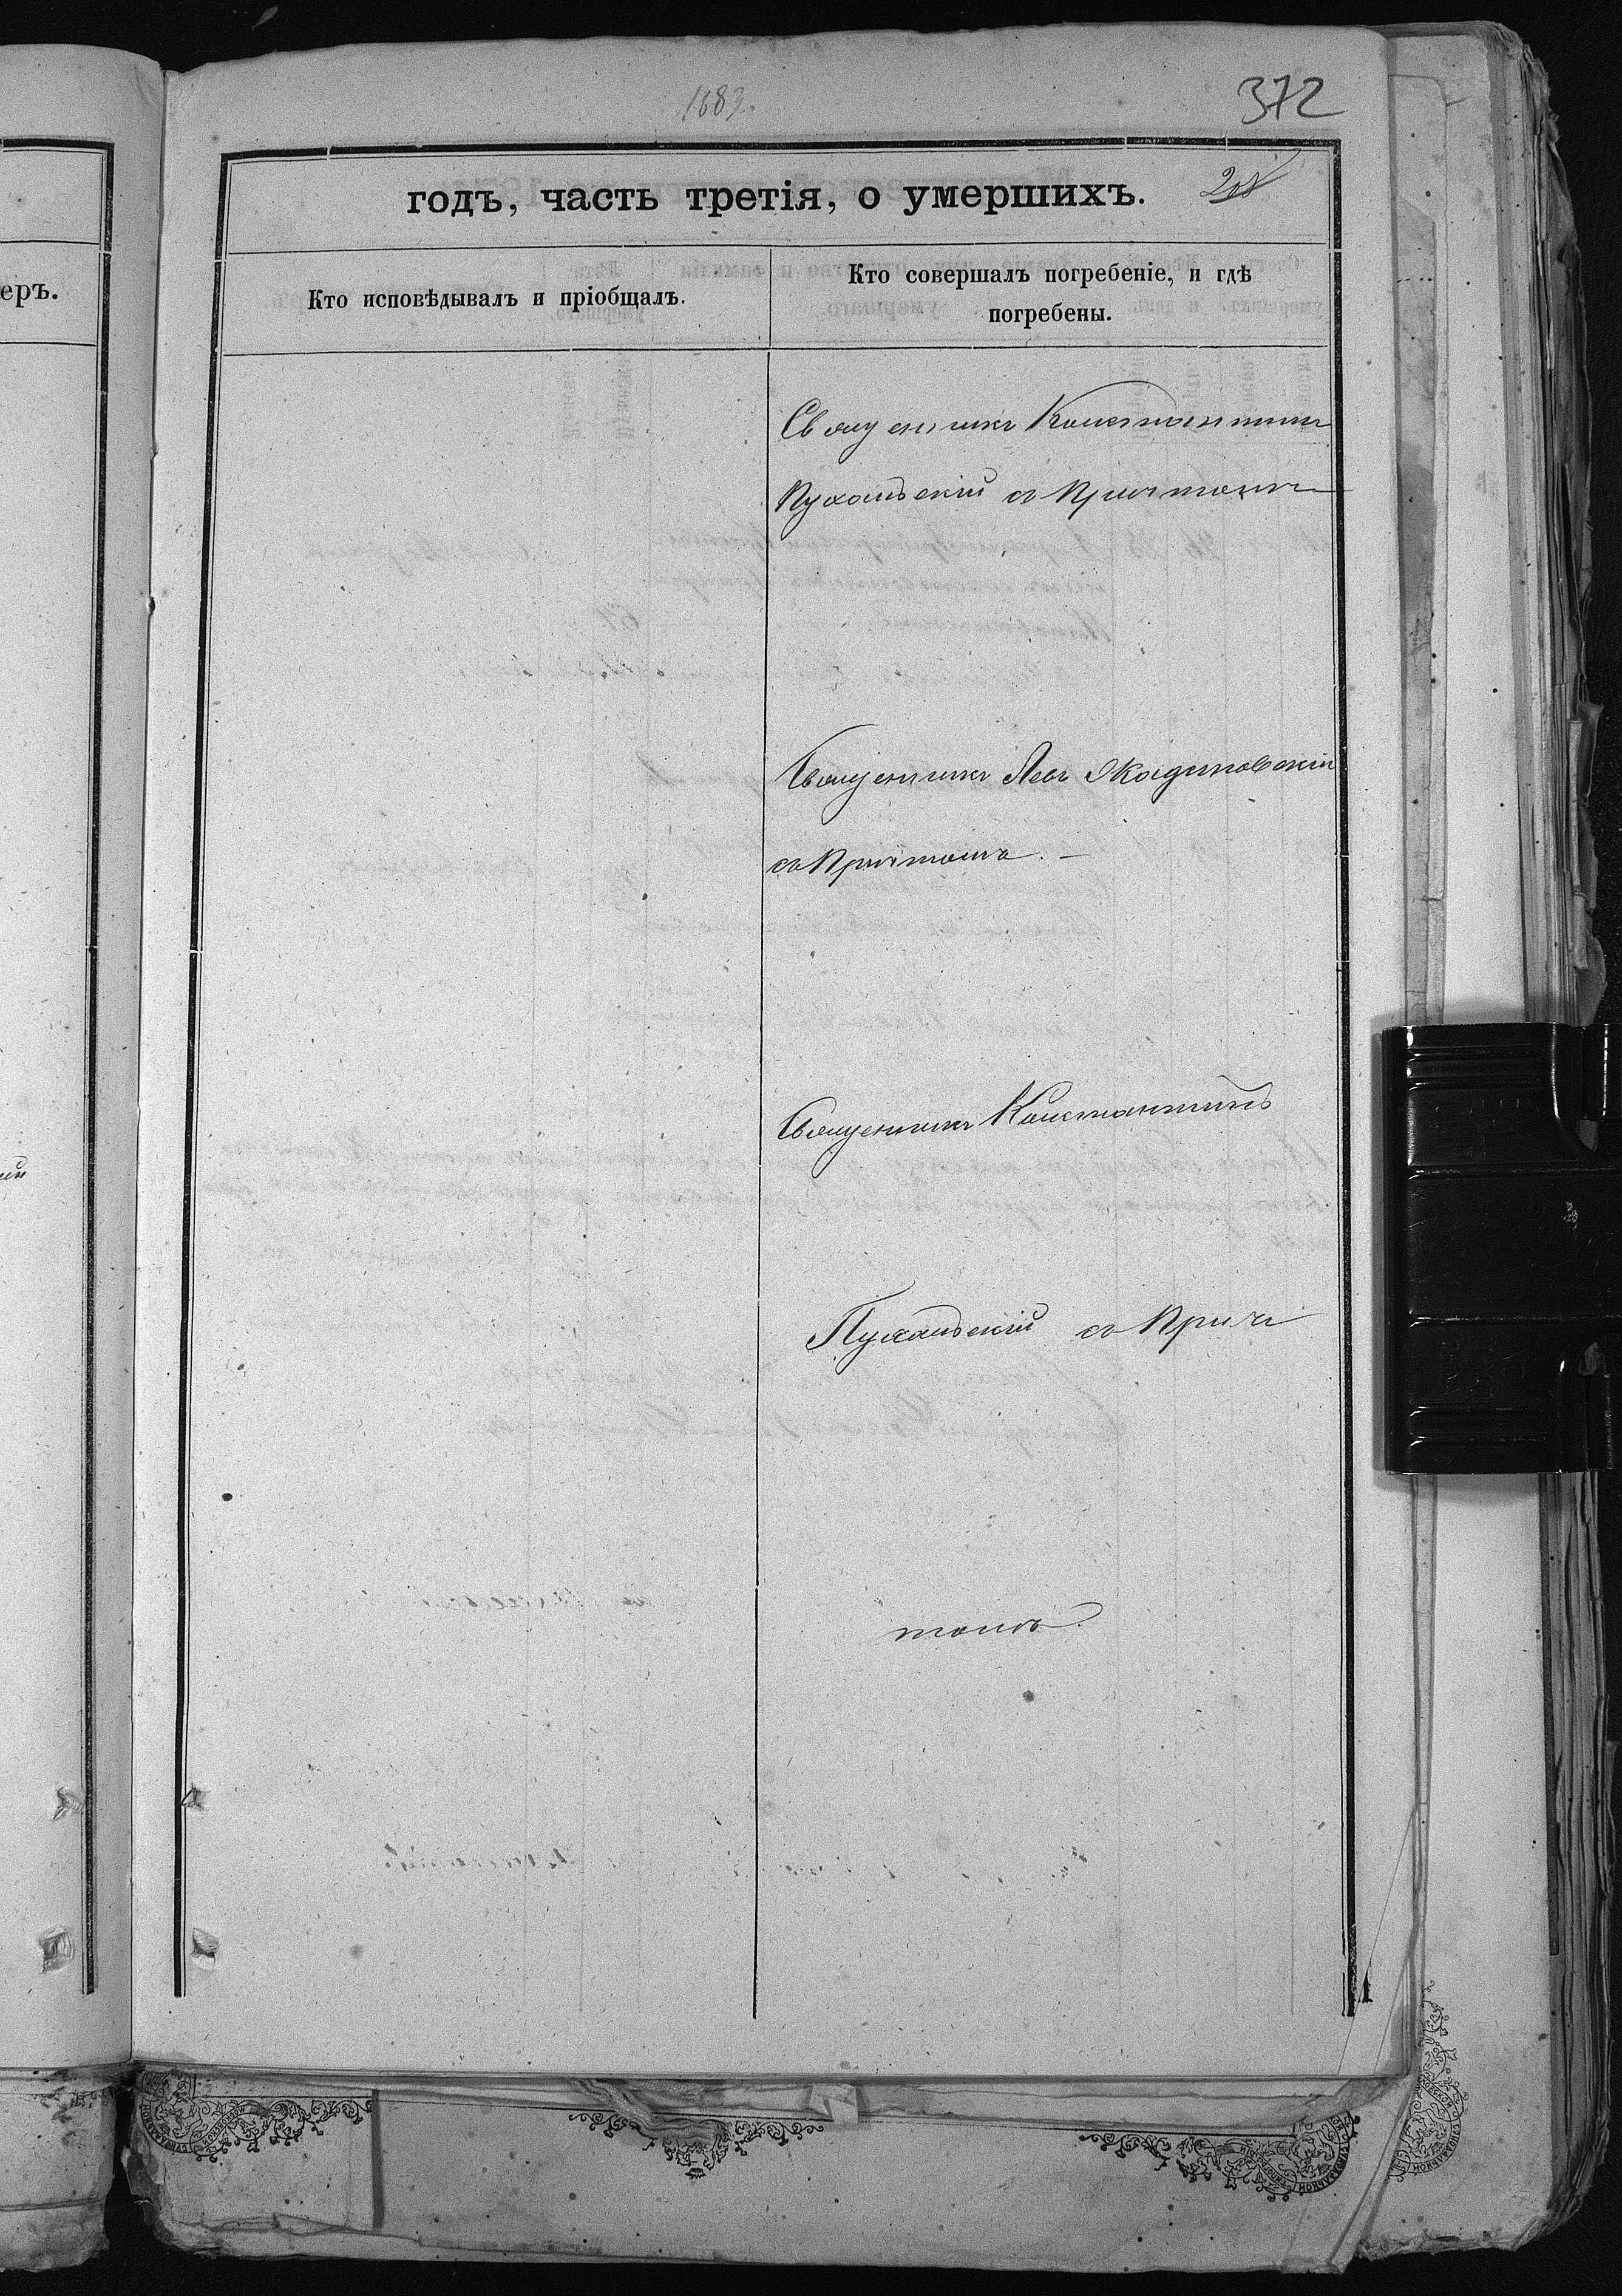 1883.
372
годъ, часть третія, о умершихъ.
Кто исповѣдывалъ и пріобщалъ.
Кто совершалъ погребеніе, и гдѣ
погребены.
еръ.
Священникъ Константинъ
Пухальскій съ Причтомъ
Священникъ Левъ
съ Причтомъ. –
Священникъ Константинъ
Пухальскій съ Прич
томъ.